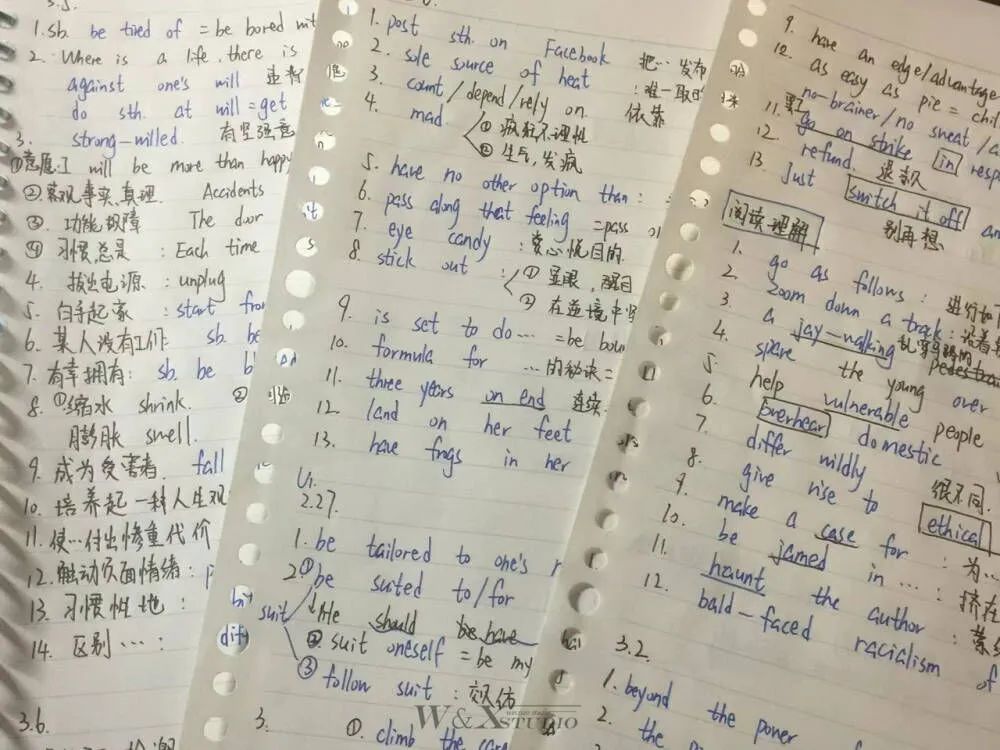 1. sb. be tired of = be bored
2. Where is a life, there is
against one's will
do sth. at will = get
3. strong-milled. 有坚强意
①意愿: I will be more than happy
②客观事实,真理. Accidents
③. 功能故障 The door
④ 习惯,总是 : Each time
4. 拔出电源 : unplug
5. 白手起家 : start from
6. 某人没有工作 sb. be
7. 有幸拥有: sb. be b
8. ①缩水 shrink. ②
膨胀 swell.
9. 成为受害者. fall
10. 培养起一种人生观
11. 使…付出惨重代价
12. 触动负面情绪 :
13. 习惯性地 :
14. 区别… :
3.6.
1. post sth. on Facebook 把…发布
2. sole source of heat : 唯一取
3. count/depend/rely on. 依靠
4. mad ① 疯狂,不理性
② 生气,发疯
5. have no other option than :
6. pass along that feeling = pass
7. eye candy : 赏心悦目的
8. stick out : ① 显眼,醒目
② 在逆境中
9. is set to do… = be bou
10. formula for …的秘诀
11. three years on end 连续
12. land on her feet
13. have frogs in her
2.27.
1. be tailored to one's
2. suit ① be suited to/for
↓He should be have
② suit oneself = be my
③ follow suit : 效仿
3. ① climb the
9. have an edge/advantage
10. as easy as pie = chil
no-brainer/no sweat/a
11. go on strike in resp
12. refund. 退款
13. Just switch it off an
别再想
阅读理解
1. go as follows : 进行如下
2. zoom down a track : 沿着
3. a jay-walking pedestra
乱穿马路的
4. spare the young over
5. help vulnerable people
6. overhear domestic
7. differ wildly 很不同.
8. give rise to ethical
9. make a case for : 为…
10. be jamed in … : 挤在
11. haunt the author :
12. bald-faced racialism of
3.2.
1. beyond the power
2. the
W&X STUDIO